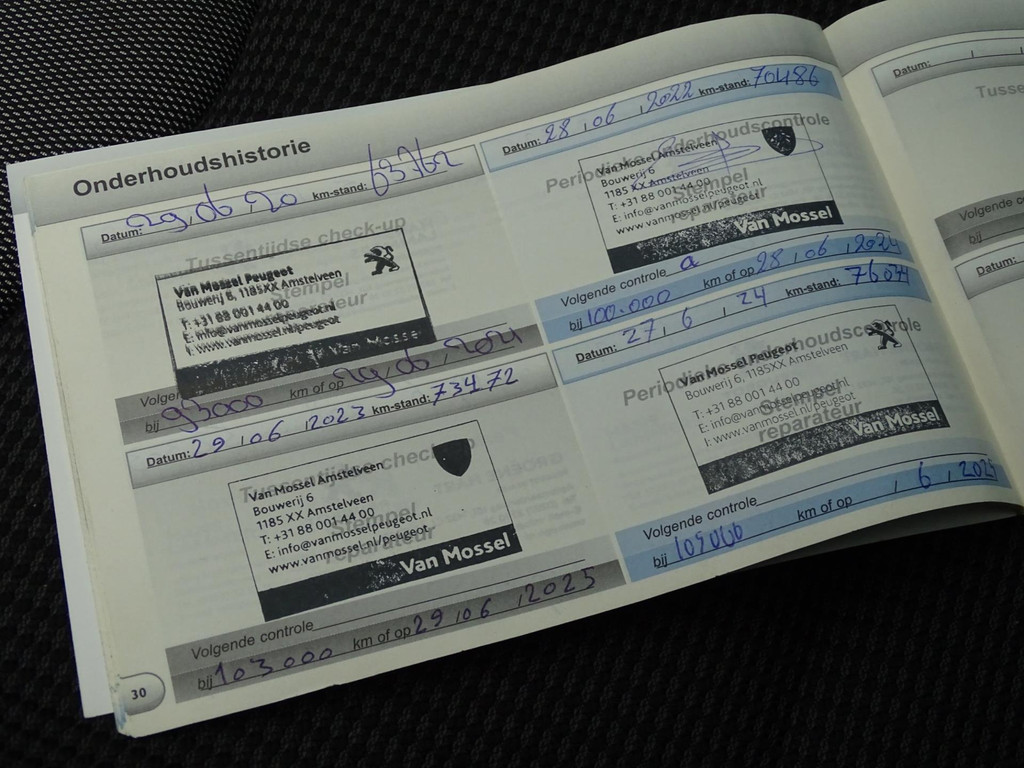 Onderhoudshistorie
Datum: 29, 06, 20 km-stand: 63762
Tussentijdse check-up
Stempel
reparateur
Van Mossel Peugeot
Bouwerij 8, 1185XX Amstelveen
T: +31 88 001 44 00
E: info@vanmossel.nl/peugeot
I: www.vanmossel.nl/peugeot
Van Mossel
bij 93000 km of op
Datum: 29 , 06 , 2023 km-stand: 73472
Tussentijdse check
Stempel
reparateur
Van Mossel Amstelveen
Bouwerij 6
1185 XX Amstelveen
T: +31 88 001 44 00
E: info@vanmosselpeugeot.nl
www.vanmossel.nl/peugeot
Van Mossel
Volgende controle
bij 103000 km of op 29 , 06 , 2025
30
Datum: 28 , 06 , 2022 km-stand: 70486
Periodieke onderhoudscontrole
Stempel
reparateur
Van Mossel Amstelveen
Bouwerij 6
1185 XX Amstelveen
T: +31 88 001 44 00
E: info@vanmosselpeugeot.nl
www.vanmossel.nl/peugeot
Van Mossel
Volgende controle a
bij 100.000 km of op 28 , 06 , 2024
Datum: 27 , 6 , 24 km-stand: 76074
Periodieke onderhoudscontrole
Stempel
reparateur
Van Mossel Peugeot
Bouwerij 6, 1185XX Amstelveen
T: +31 88 001 44 00
E: info@vanmosselpeugeot.nl
I: www.vanmossel.nl/peugeot
Van Mossel
Volgende controle
bij km of op , 6 ,
Datum:
Tusse
Volgende co
bij
Datum: